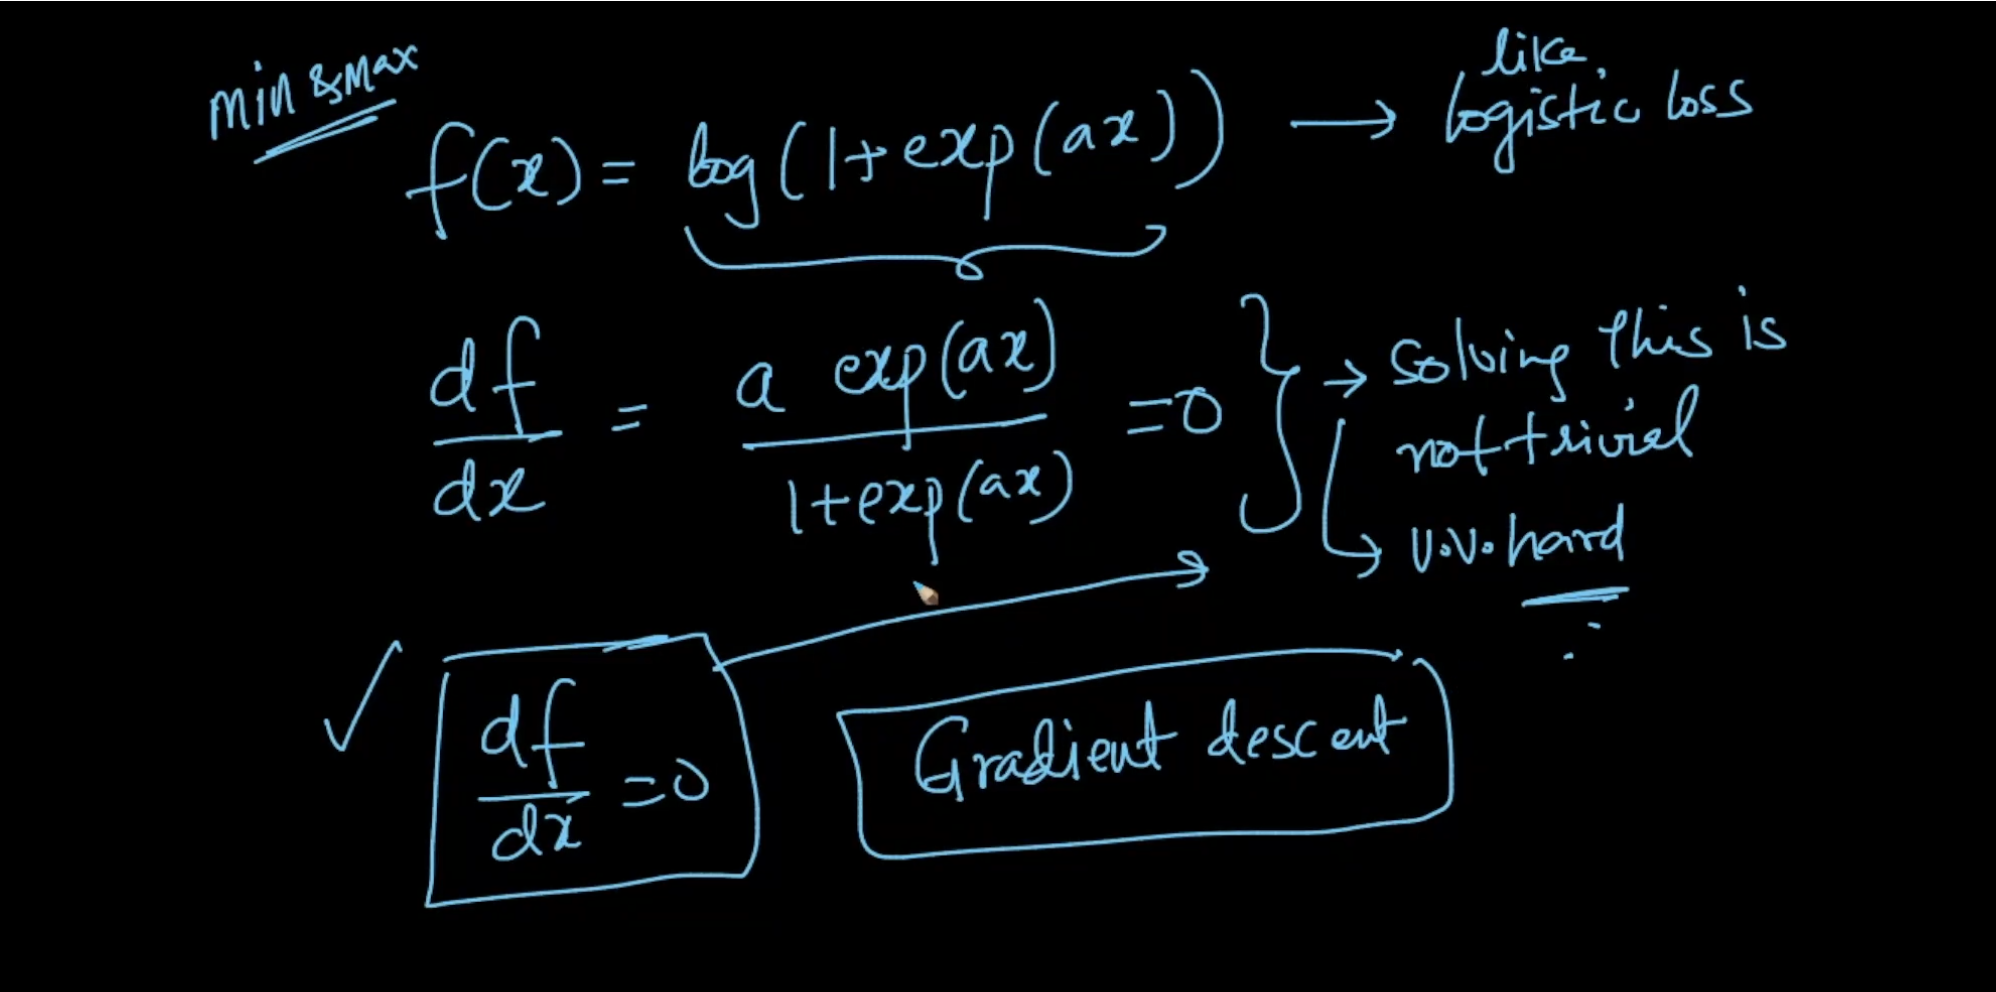 min & max
f(x) = log(1+exp(ax)) → like logistic loss
df/dx = a exp(ax) / 1+exp(ax) = 0 } → solving this is
not trivial
→ v.v. hard
✓ df/dx = 0
Gradient descent